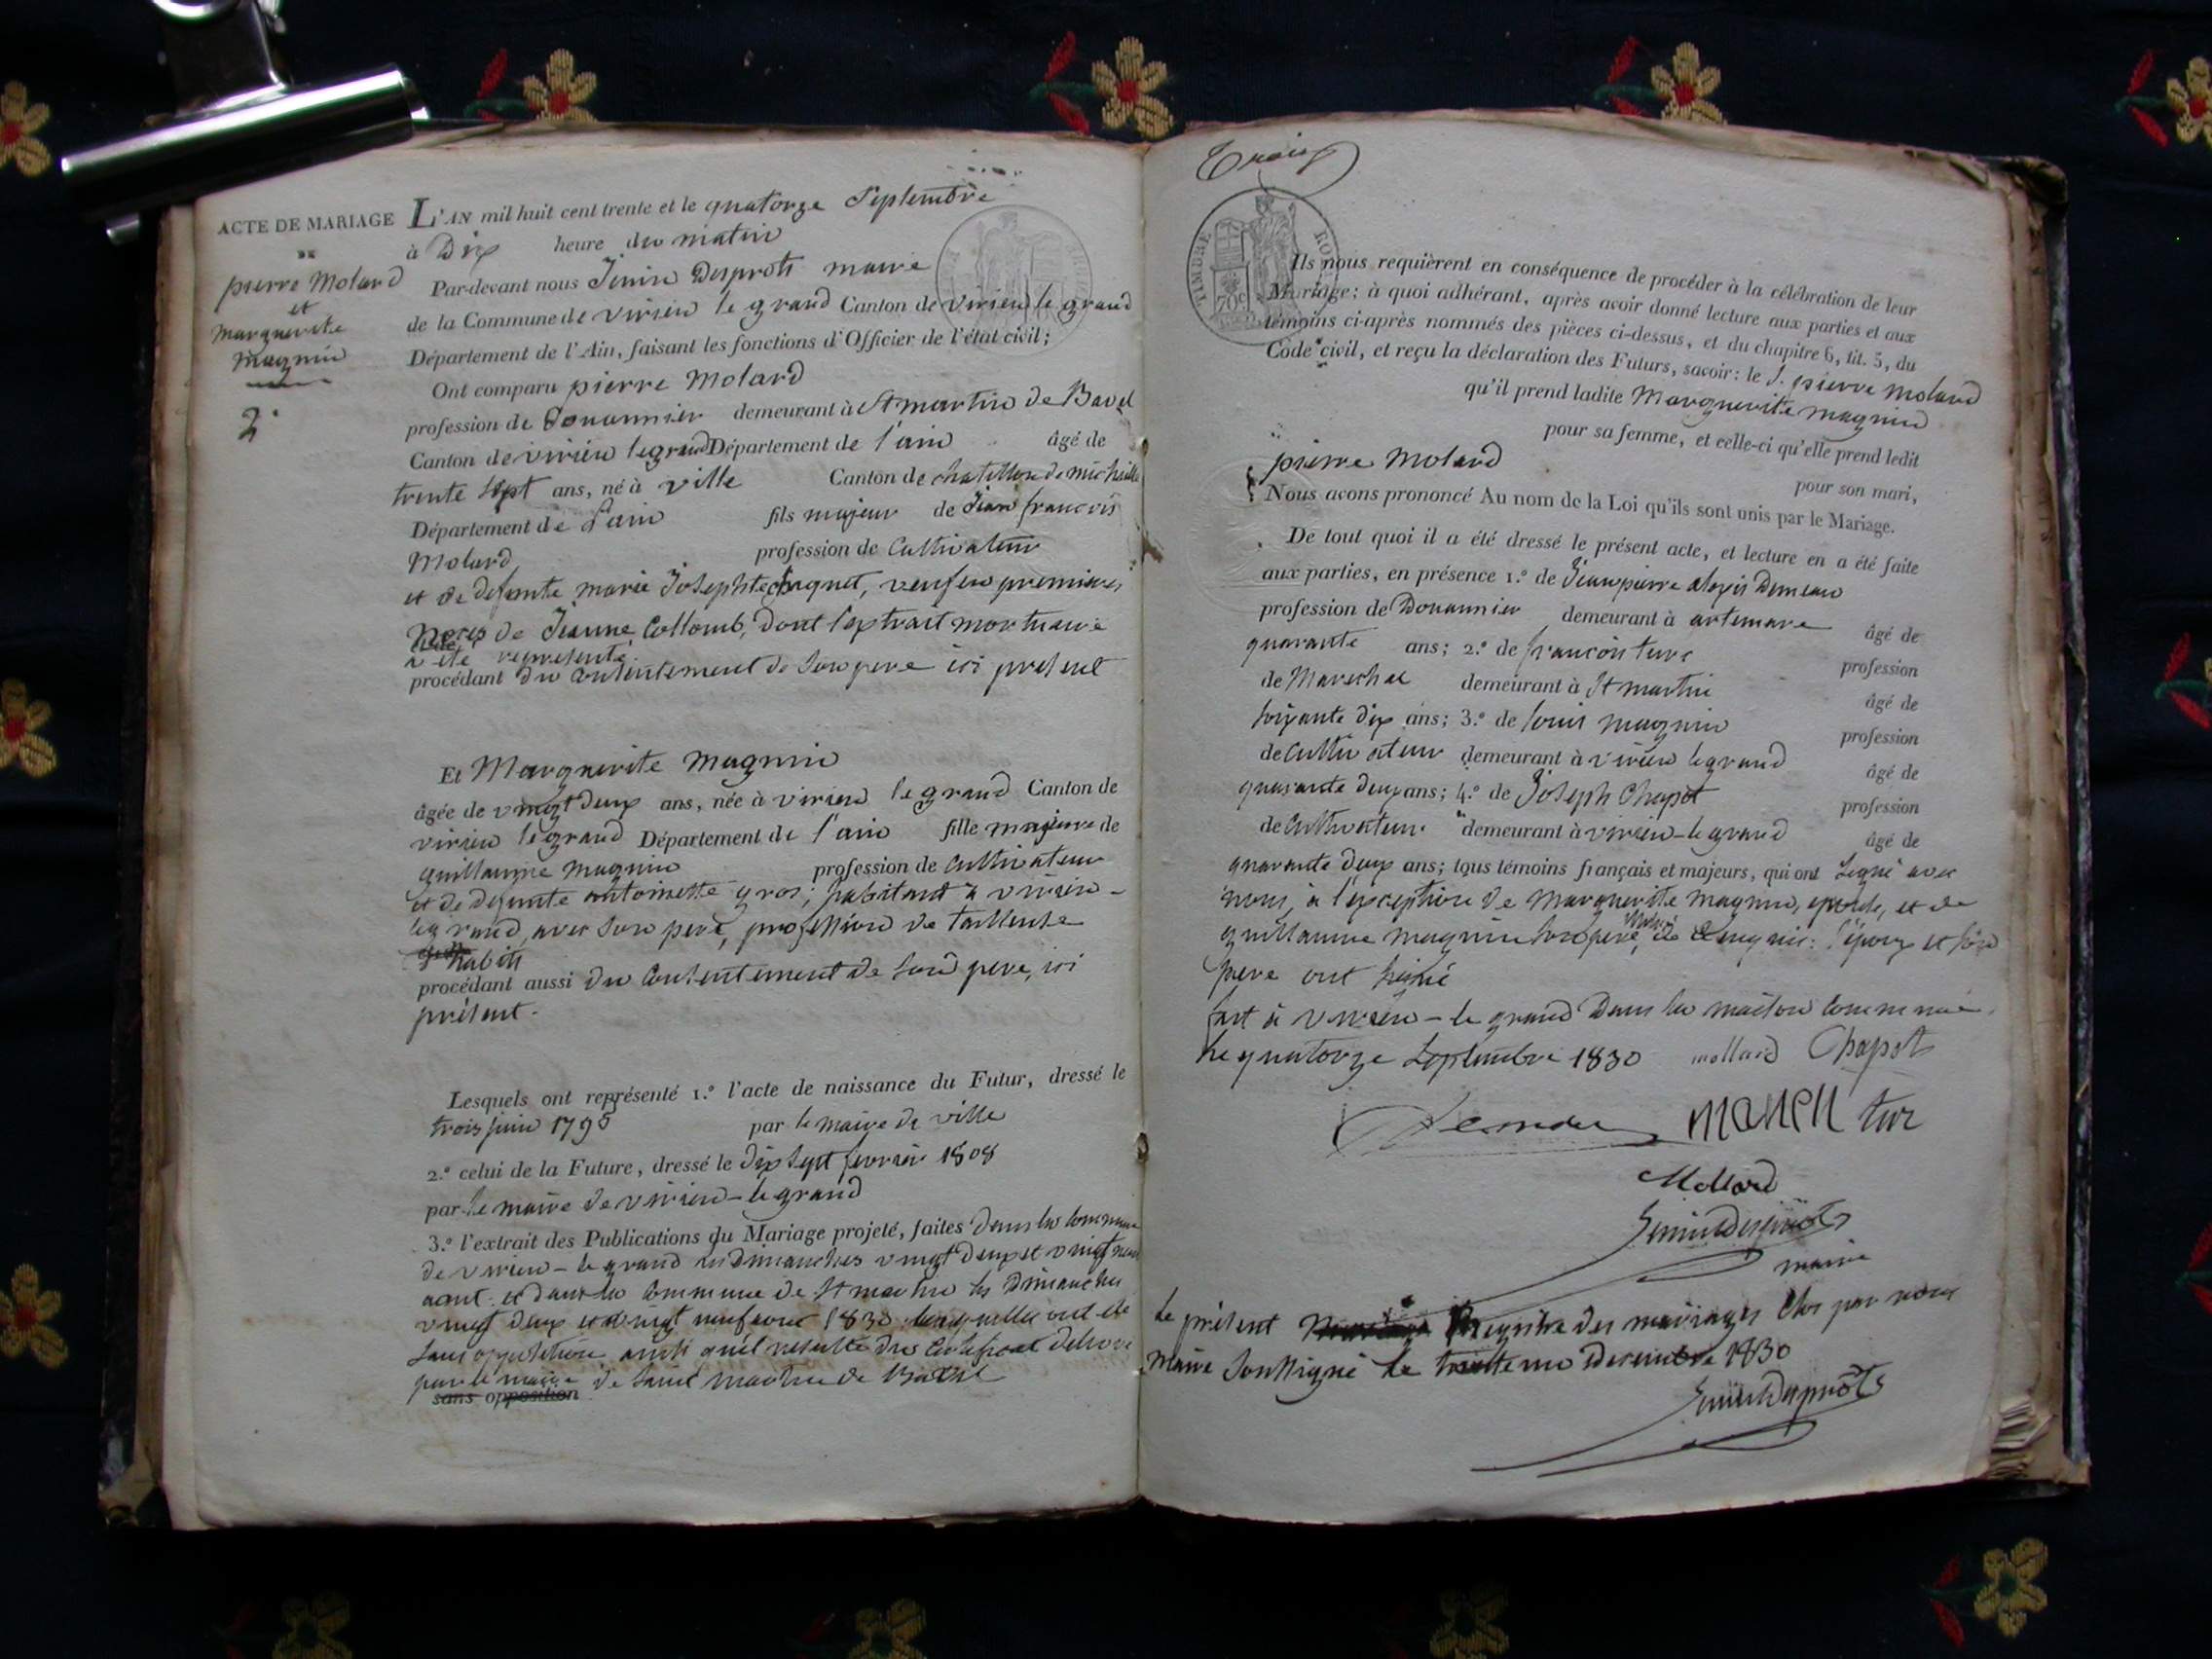 ACTE DE MARIAGE
DE
pierre Molard
et
marguerite
magnin
2
L'AN mil huit cent trente et le quatorze Septembre
à Dix heure du matin
Par-devant nous Jenin Desprots maire
de la Commune de virieu le grand Canton de virieu le grand
Département de l'Ain, faisant les fonctions d'Officier de l'état civil;
Ont comparu pierre Molard
profession de Douannier demeurant à St martin de Bavel
Canton de virieu legrand Département de l'ain âgé de
trente sept ans, né à ville Canton de chatillon de michaille
Département de L'ain fils majeur de Jean françois
Molard profession de Cultivateur
et de defunte marie Josephte, veuf en premieres
Noces de Jeanne Collomb, dont l'extrait mortuaire
a été representé
procédant du Consentement de son pere ici présent
Et Marguerite Magnin
âgée de vingt deux ans, née à virieu le grand Canton de
virieu legrand Département de l'ain fille majeure de
guillaume magnin profession de Cultivateur
et de defunte antoinette gros; habitant à virieu-
legrand, avec son pere, profession de tailleuse
d'habits
procédant aussi du Consentement de son pere, ici
présent.
Lesquels ont représenté 1.° l'acte de naissance du Futur, dressé le
trois juin 1793 par le maire de ville
2.° celui de la Future, dressé le dix sept fevrier 1808
par le maire de virieu-le grand
3.° l'extrait des Publications du Mariage projeté, faites dans la commune
de virieu-le grand les dimanches vingt deux et vingt neuf
aout. et dans la Commune de St martin les Dimanches
vingt deux et vingt neuf aout 1830 lesquelles ont été
sans opposition ainsi qu'il resulte du Certificat delivré
par le maire de Saint martin de Bavel
sans opposition
Trois
TIMBRE ROYAL
70c
Ils nous requièrent en conséquence de procéder à la célébration de leur
Mariage; à quoi adhérant, après avoir donné lecture aux parties et aux
témoins ci-après nommés des pièces ci-dessus, et du chapitre 6, tit. 5, du
Code civil, et reçu la déclaration des Futurs, savoir: le S. pierre Molard
qu'il prend ladite Marguerite magnin
pour sa femme, et celle-ci qu'elle prend ledit
pierre Molard pour son mari,
Nous avons prononcé Au nom de la Loi qu'ils sont unis par le Mariage.
De tout quoi il a été dressé le présent acte, et lecture en a été faite
aux parties, en présence 1.° de Jean pierre
profession de Douannier demeurant à artemare âgé de
quarante ans; 2.° de françois turc profession
de Marechal demeurant à St martin âgé de
soixante dix ans; 3.° de louis magnin profession
de Cultivateur demeurant à virieu legrand âgé de
quarante deux ans; 4.° de Joseph Chapot profession
de Cultivateur demeurant à virieu-legrand âgé de
quarante deux ans; tous témoins français et majeurs, qui ont Signé avec
nous, à l'exception de Marguerite magnin, epouse, et de
guillaume magnin son pere, de ce requis: l'époux et son
pere ont signé
fait à virieu-le grand Dans la maison Commune
le quatorze Septembre 1830 mollard Chapot
Manen tur
Mollard
Jenin Desprots
maire
Le présent Registre des mariages Clos par nous
maire Soussigné le trente un Decembre 1830
Jenin Desprots